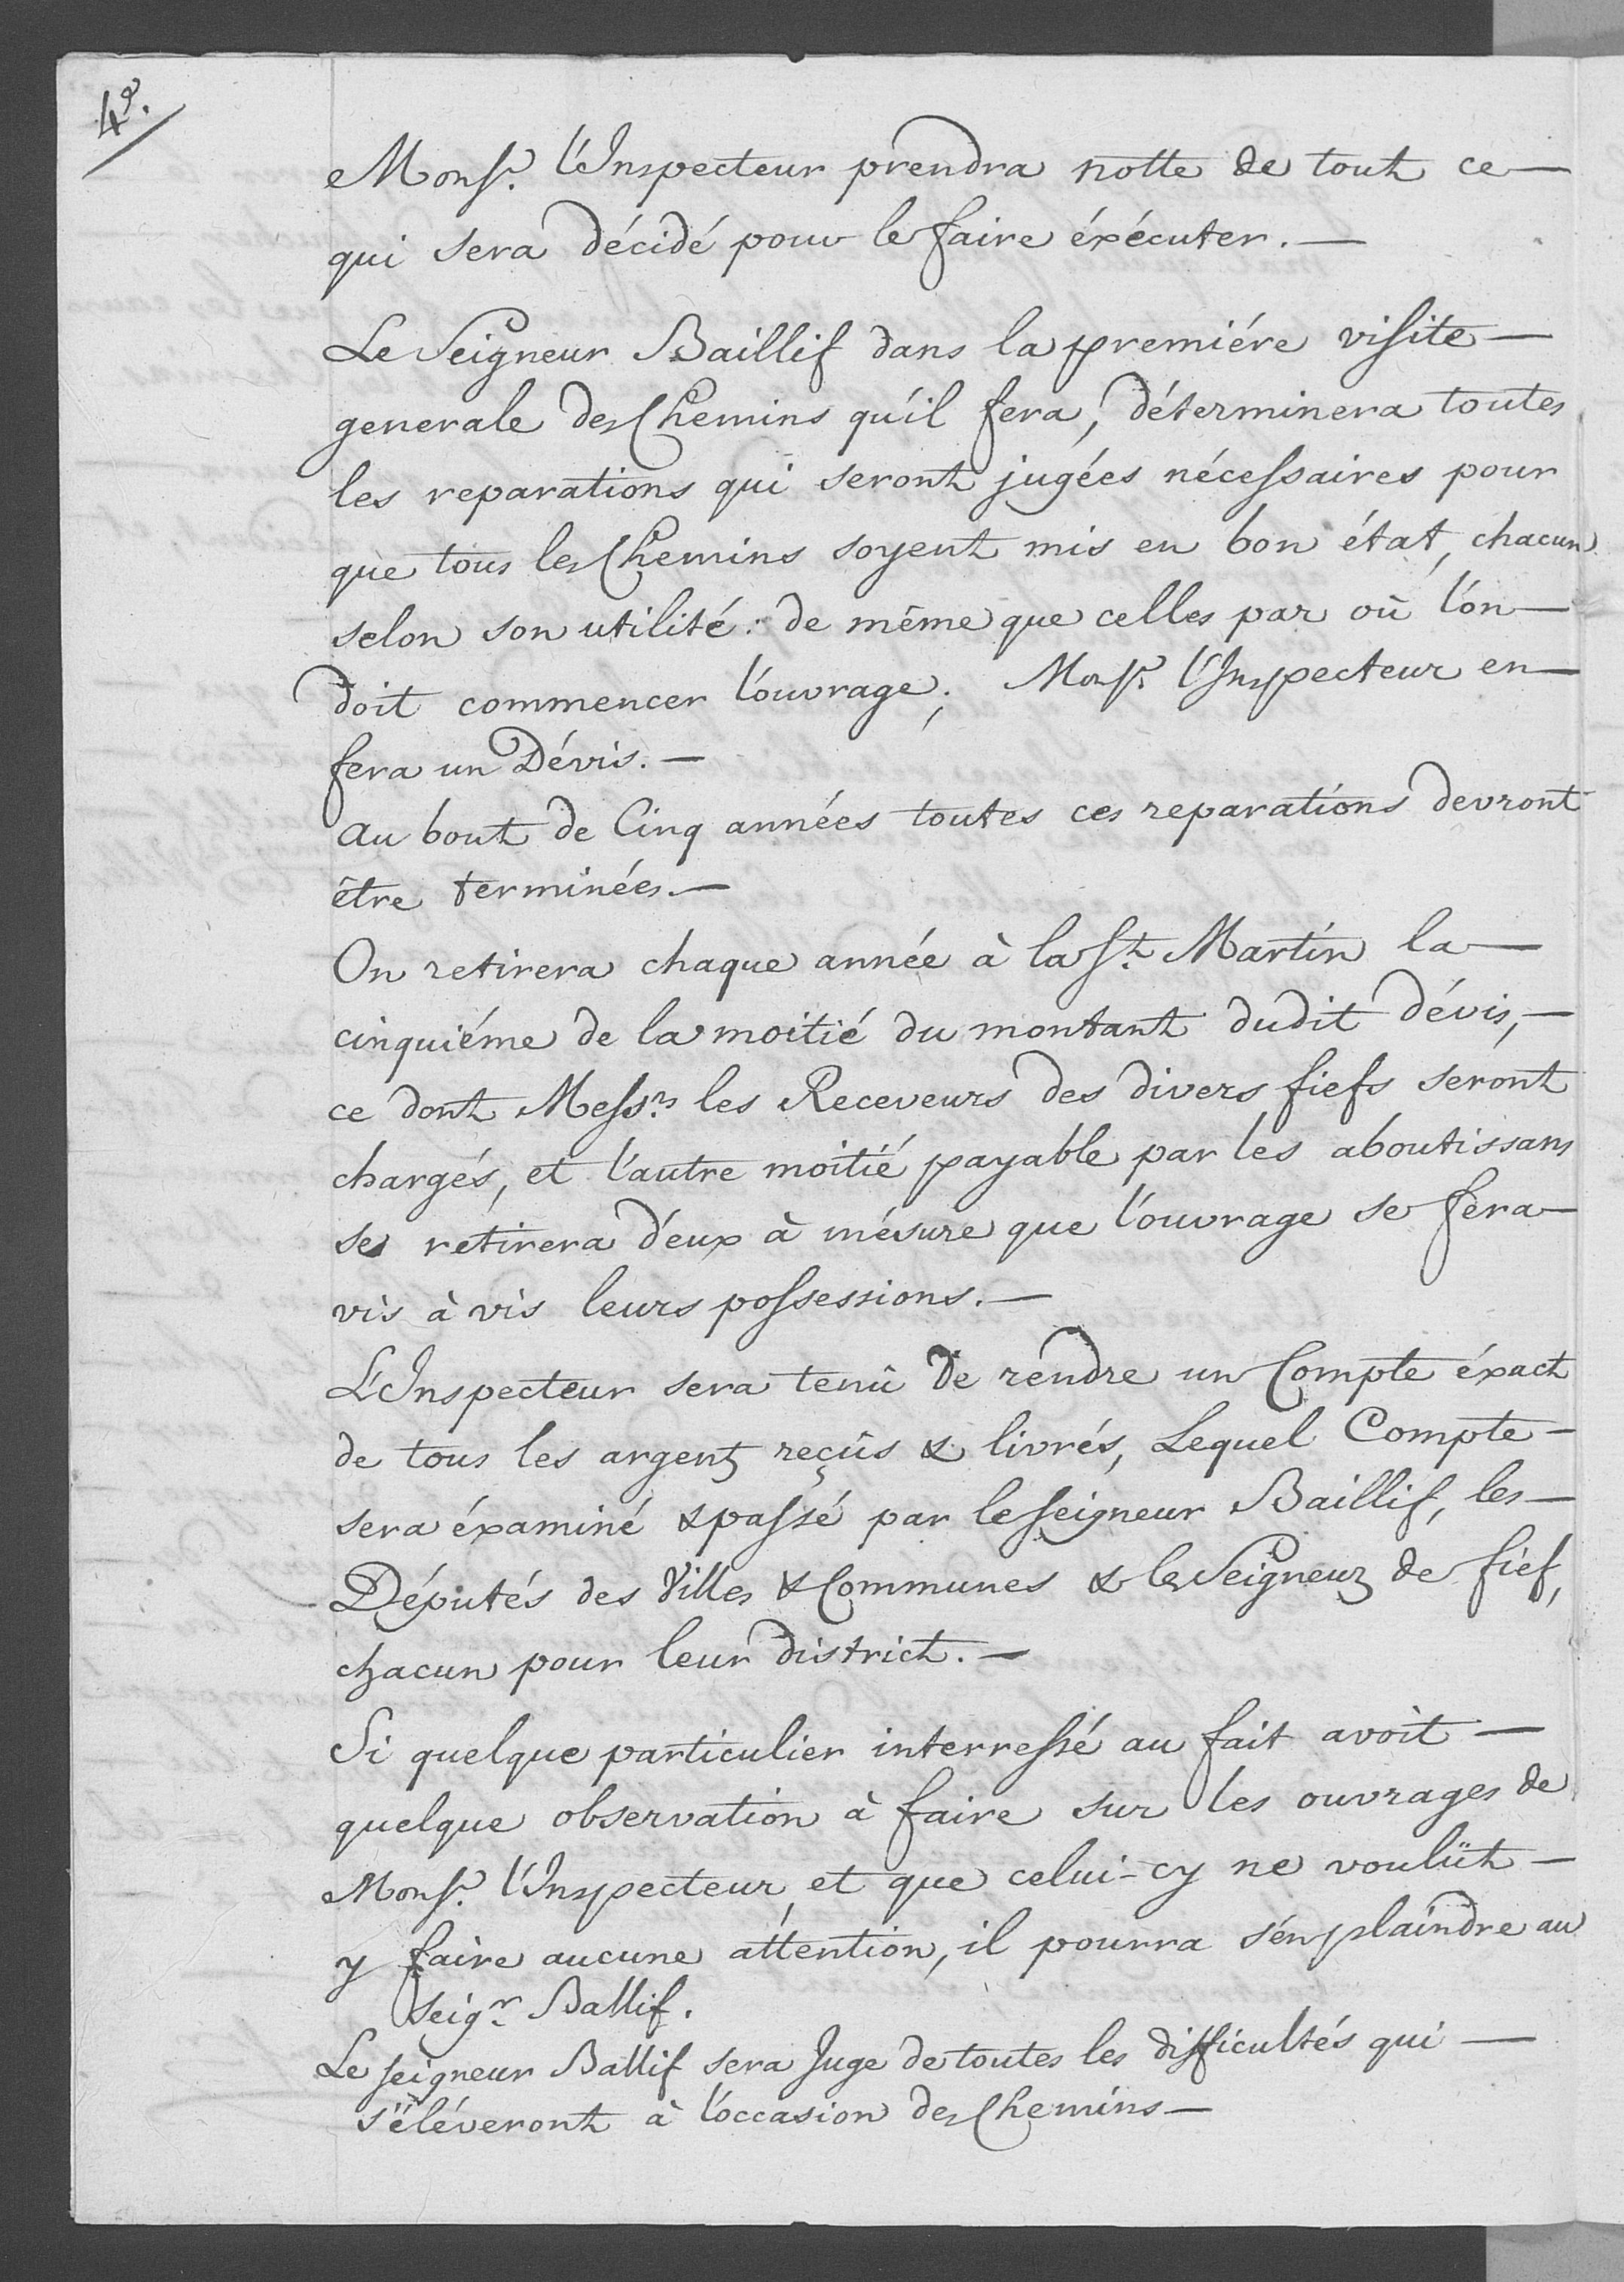 4º.
Monsr. l'Inspecteur prendra notte de tout ce —
qui sera décidé pour le faire éxécuter. —
Le Seigneur Baillif dans la premiére visite —
generale des Chemins qu'il fera, déterminera toutes
les reparations qui seront jugées nécessaires pour
que tous les Chemins soyent mis en bon état, chacun
selon son utilité: de même que celles par où l'on —
doit commencer l'ouvrage; Monsr. l'Inspecteur en —
fera un Dévis. —
au bout de Cinq années toutes ces reparations devront
être terminées. —
On retirera chaque année à la St. Martin la —
cinquiéme de la moitié du montant dudit dévis, —
ce dont Messrs. les Receveurs des divers fiefs seront
chargés, et l'autre moitié payable par les aboutissans
se retirera d'eux à mésure que l'ouvrage se fera —
vis à vis leurs possessions. —
L'Inspecteur sera tenû de rendre un Compte éxact
de tous les argents reçûs & livrés, Lequel Compte —
sera éxaminé & passé par le seigneur Baillif, les —
Députés des Villes & Communes & les Seigneurs de fief,
chacun pour leur district. —
Si quelque particulier interressé au fait avoit —
quelque observation à faire sur les ouvrages de
Monsr. l'Inspecteur, et que celui-cy ne voulût —
y faire aucune attention, il pourra s'en plaindre au
Seigr. Ballif.
Le seigneur Ballif sera Juge de toutes les difficultés qui —
s'éléveront à l'occasion des Chemins —